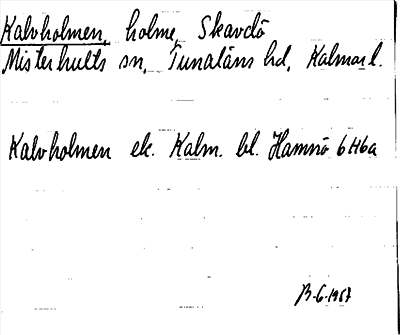 Kalvholmen, holme, Skavdö
Misterhults sn, Tunaläns hd, Kalmar l.
Kalvholmen ek. Kalm. bl. Hamnö 6 H6a
13-6-1967